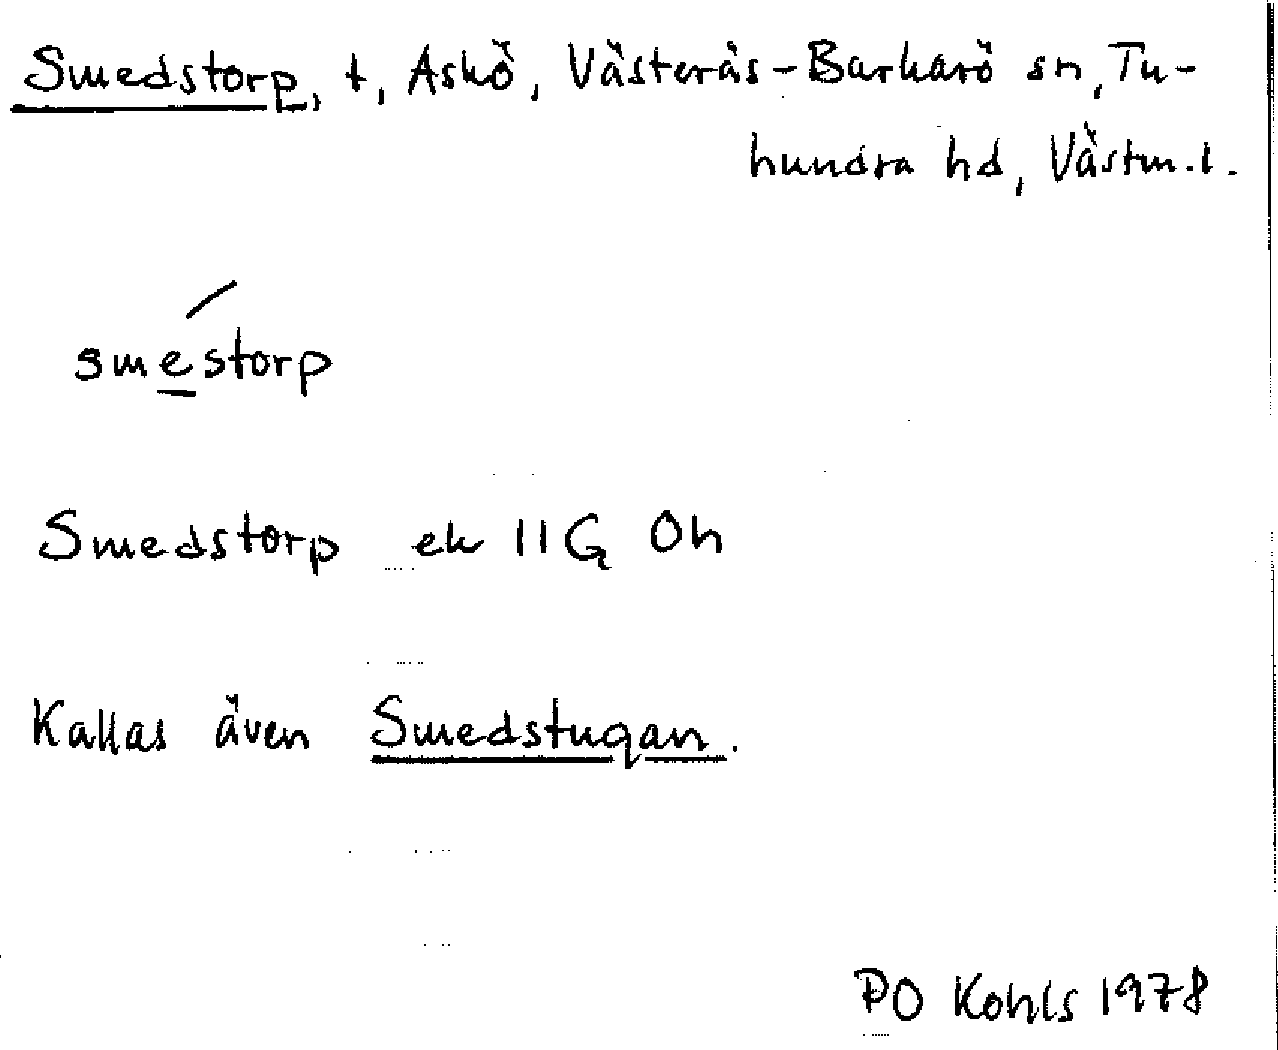 Smedstorp, t, Askö, Västerås-Barkarö sn, Tu-
hundra hd, Västm.l.
smestorp
Smedstorp ek 11G 0h
Kallas även Smedstugan.
PO Kohls 1978